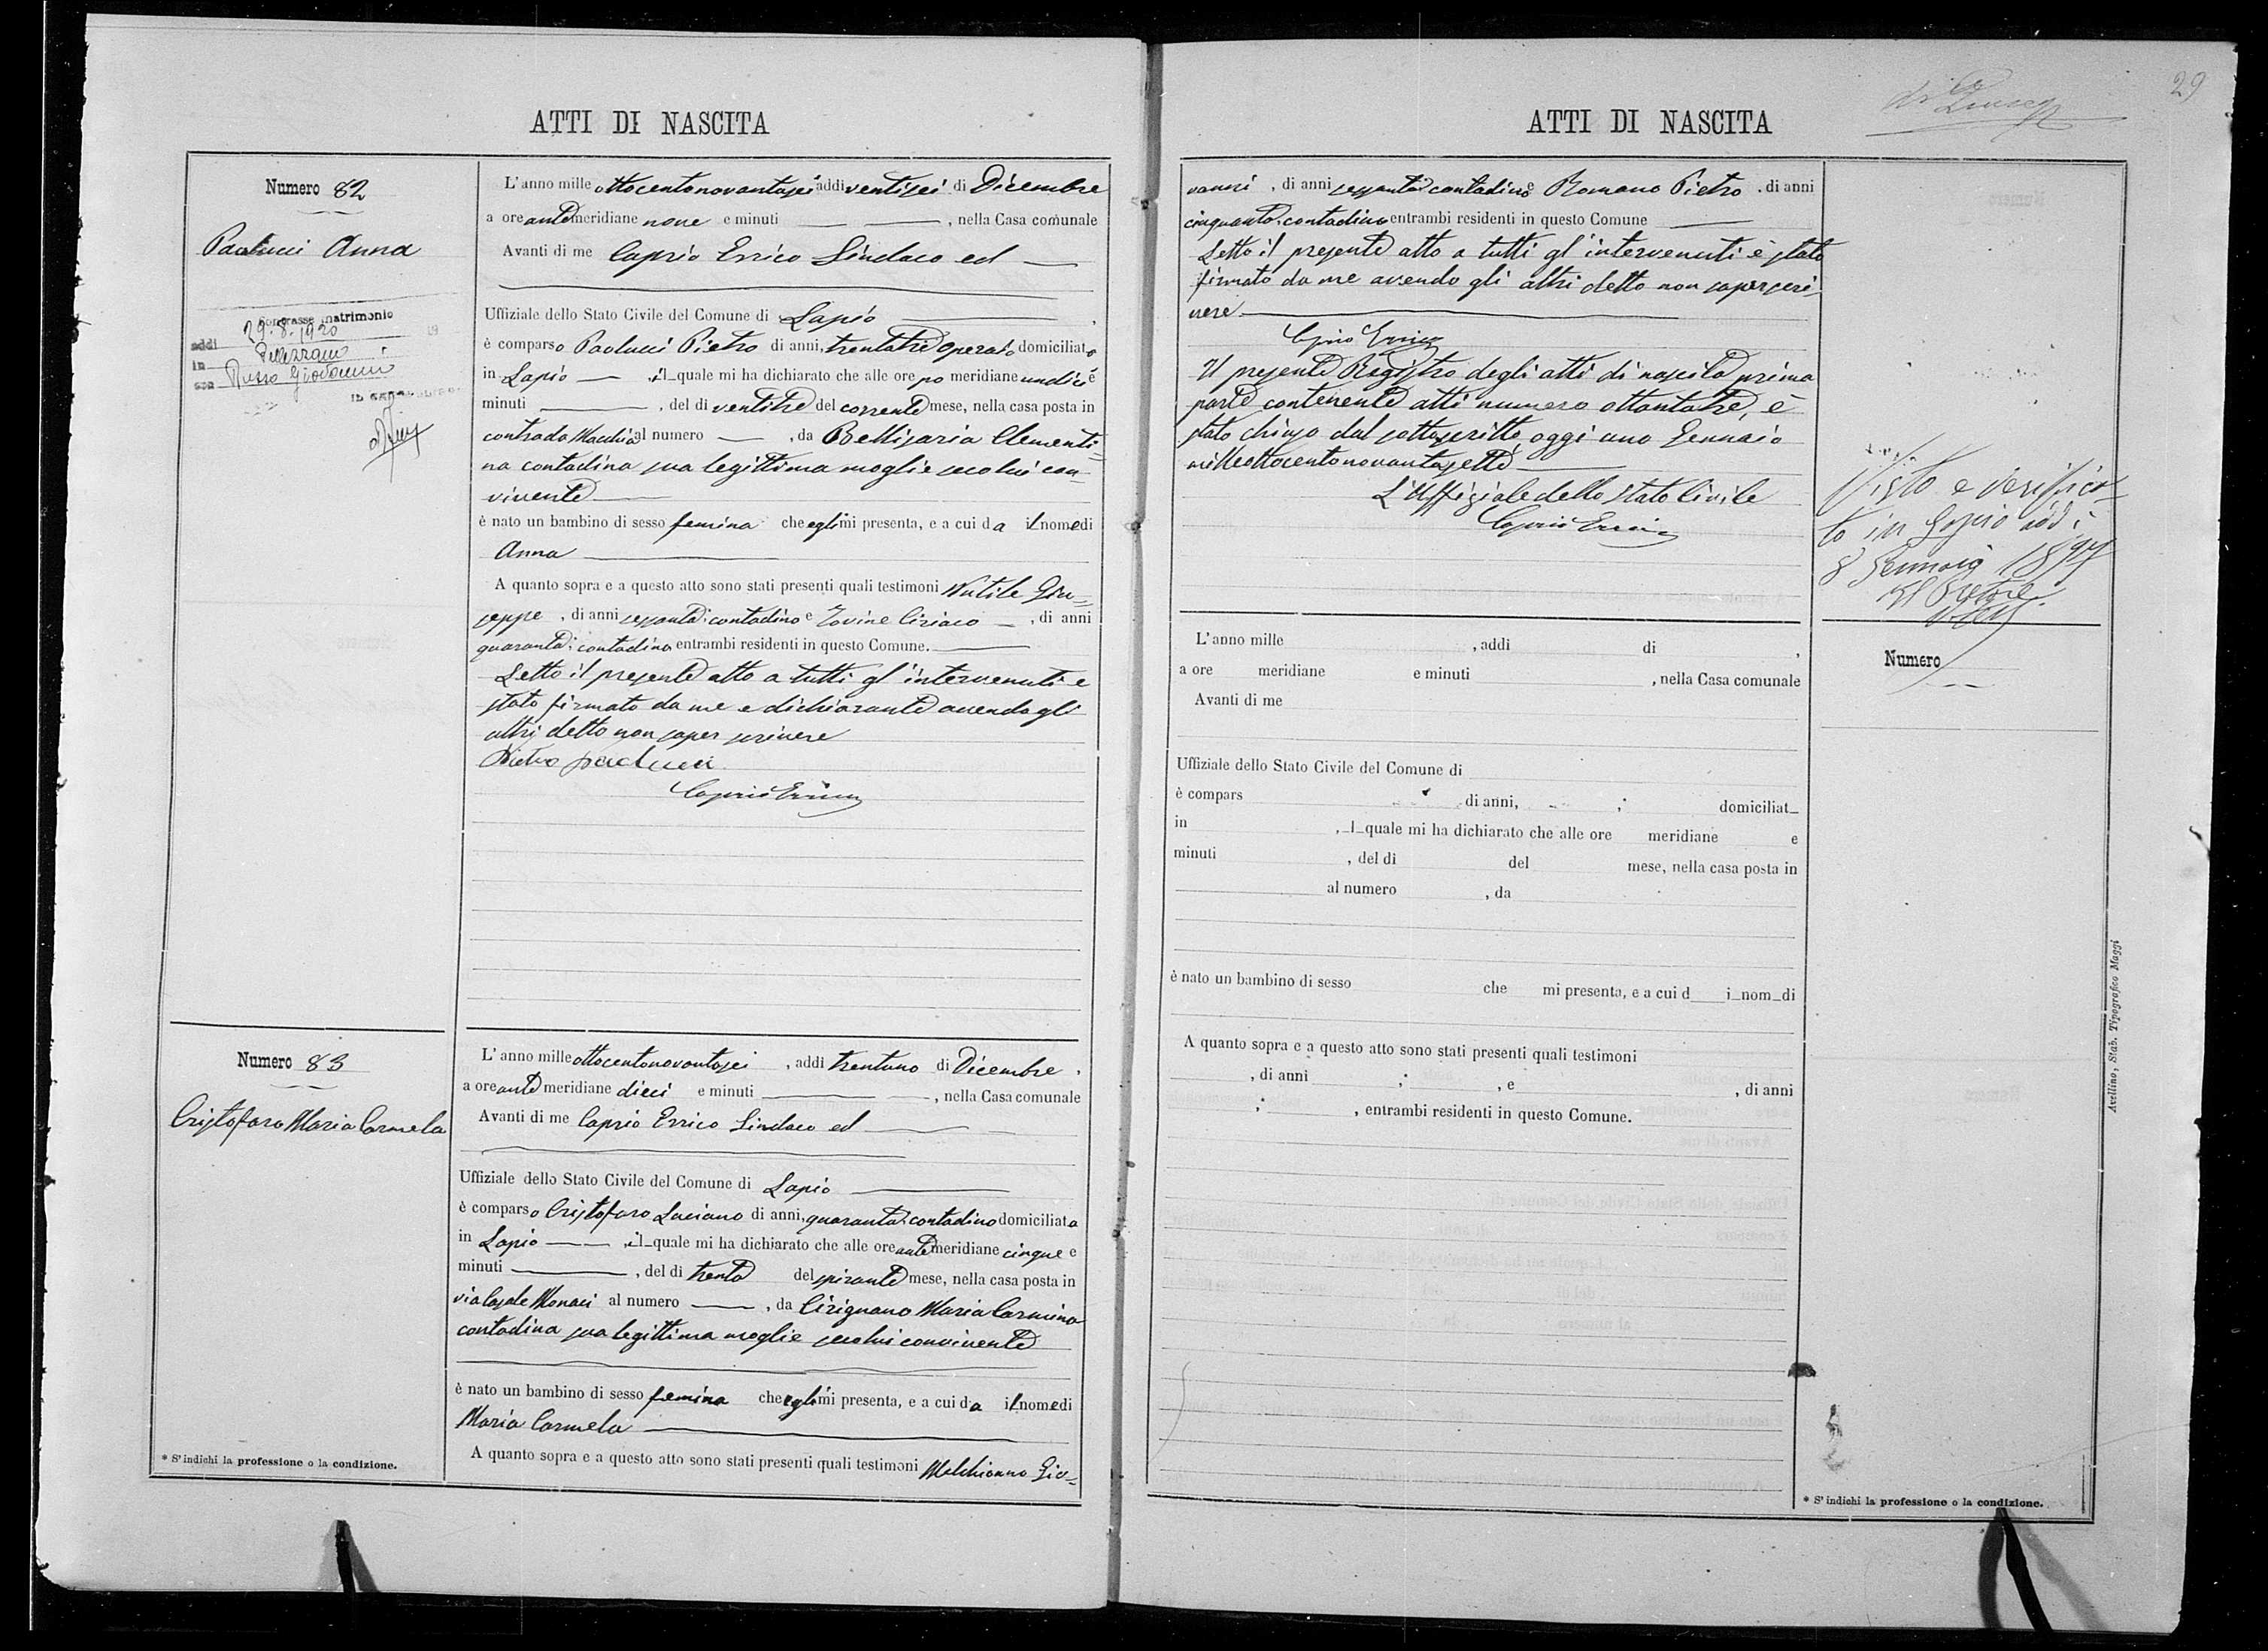 ATTI DI NASCITA
Numero 82
Paolucci Anna
Contrasse matrimonio
addi 29.8.1920
in Pellezzano
con Russo Giovanni
L'anno mille ottocentonovantasei addi ventisei di Dicembre
a ore antemeridiane nove e minuti , nella Casa comunale
Avanti di me Caprio Errico Sindaco ed
Uffiziale dello Stato Civile del Comune di Lapio ,
è comparso Paolucci Pietro di anni, trentatre operaio domiciliato
in Lapio , il quale mi ha dichiarato che alle ore po meridiane undici e
minuti , del di ventitre del corrente mese, nella casa posta in
contrada Macchia al numero , da Bellisaria Clementi=
na contadina sua legittima moglie seco lui con=
vivente
è nato un bambino di sesso femina che egli mi presenta, e a cui da il nome di
Anna
A quanto sopra e a questo atto sono stati presenti quali testimoni Nutile Giu=
seppe , di anni sessanta; contadino e Iovine Ciriaco , di anni
quaranta; contadino entrambi residenti in questo Comune.
Letto il presente atto a tutti gl'intervenuti e
stato firmato da me e dichiarante avendo gli
altri detto non saper scrivere
Pietro paolucci
Caprio Errico
Numero 83
Cristofaro Maria Carmela
L'anno mille ottocentonovantasei , addi trentuno di Dicembre ,
a ore antemeridiane dieci e minuti , nella Casa comunale
Avanti di me Caprio Errico Sindaco ed
Uffiziale dello Stato Civile del Comune di Lapio
è comparso Cristofaro Luciano di anni, quaranta; contadino domiciliato
in Lapio , il quale mi ha dichiarato che alle ore antemeridiane cinque e
minuti , del di trenta del spirante mese, nella casa posta in
via Casale Monaci al numero , da Cirignano Maria Carmina
contadina sua legittima moglie seco lui convivente
è nato un bambino di sesso femina che egli mi presenta, e a cui da il nome di
Maria Carmela
A quanto sopra e a questo atto sono stati presenti quali testimoni Melchionno Gio=
* S'indichi la professione o la condizione.
29
ATTI DI NASCITA
vanni , di anni sessanta; contadino e Romano Pietro , di anni
cinquanta; contadino entrambi residenti in questo Comune
Letto il presente atto a tutti gl'intervenuti è stato
firmato da me avendo gli altri detto non saper scri=
vere
Caprio Errico
Il presente Registro degli atti di nascita prima
parte contenente atti numero ottantatre, è
stato chiuso dal sottoscritto oggi uno Gennaio
milleottocentonovantasette
L'Uffiziale dello Stato Civile
Caprio Errico
Visto e verifica=
to in Lapio addi
8 Gennaio 1897
Il Pretore
L'anno mille , addi di ,
a ore meridiane e minuti , nella Casa comunale
Avanti di me
Numero
Uffiziale dello Stato Civile del Comune di
è compars di anni, ; domiciliat
in , l quale mi ha dichiarato che alle ore meridiane e
minuti , del di del mese, nella casa posta in
al numero , da
è nato un bambino di sesso che mi presenta, e a cui d i nom di
A quanto sopra e a questo atto sono stati presenti quali testimoni
, di anni ; , e , di anni
; , entrambi residenti in questo Comune.
* S'indichi la professione o la condizione.
Avellino, Stab. Tipografico Maggi